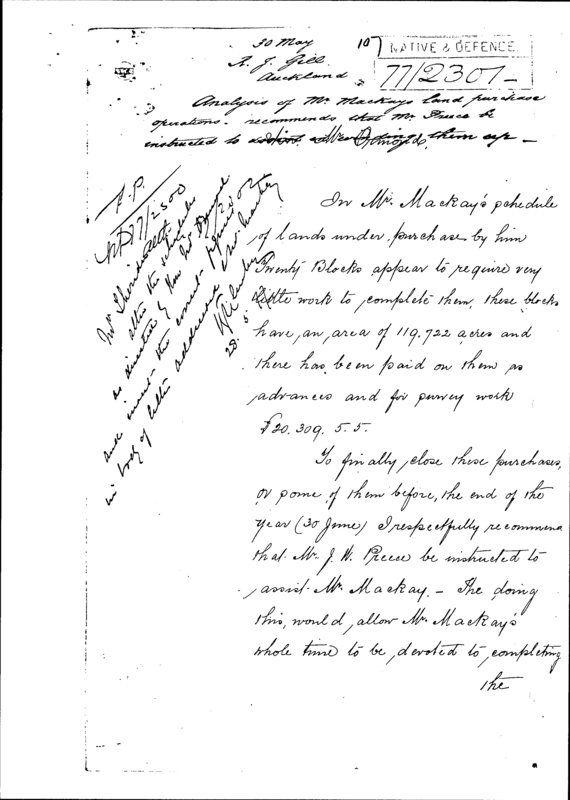 30 May
R. J. Gill
Auckland
107
NATIVE & DEFENCE.
77/2301
Analysis of Mr Mackays land purchase
operations. recommends that Mr Preece be
instructed to
F.P.
77/2500
Mr Sheridan
alter the schedules
as directed by Hon
and insert the
in body of letter addressed Mr Mackay
28.5
In Mr. Mackay's schedule
of lands under purchase by him
Twenty Blocks appear to require very
little work to complete them, these blocks
have, an, area of 119.722 acres and
there has been paid on them as
advances and for survey work
£20.309. 5. 5.
To finally close these purchases,
or some of them before, the end of the
Year (30 June) I respectfully recommend
that Mr. J. W. Preece be instructed to
assist Mr. Mackay. - The doing
this, would, allow Mr. Mackay's
whole time to be, devoted to, completing
the